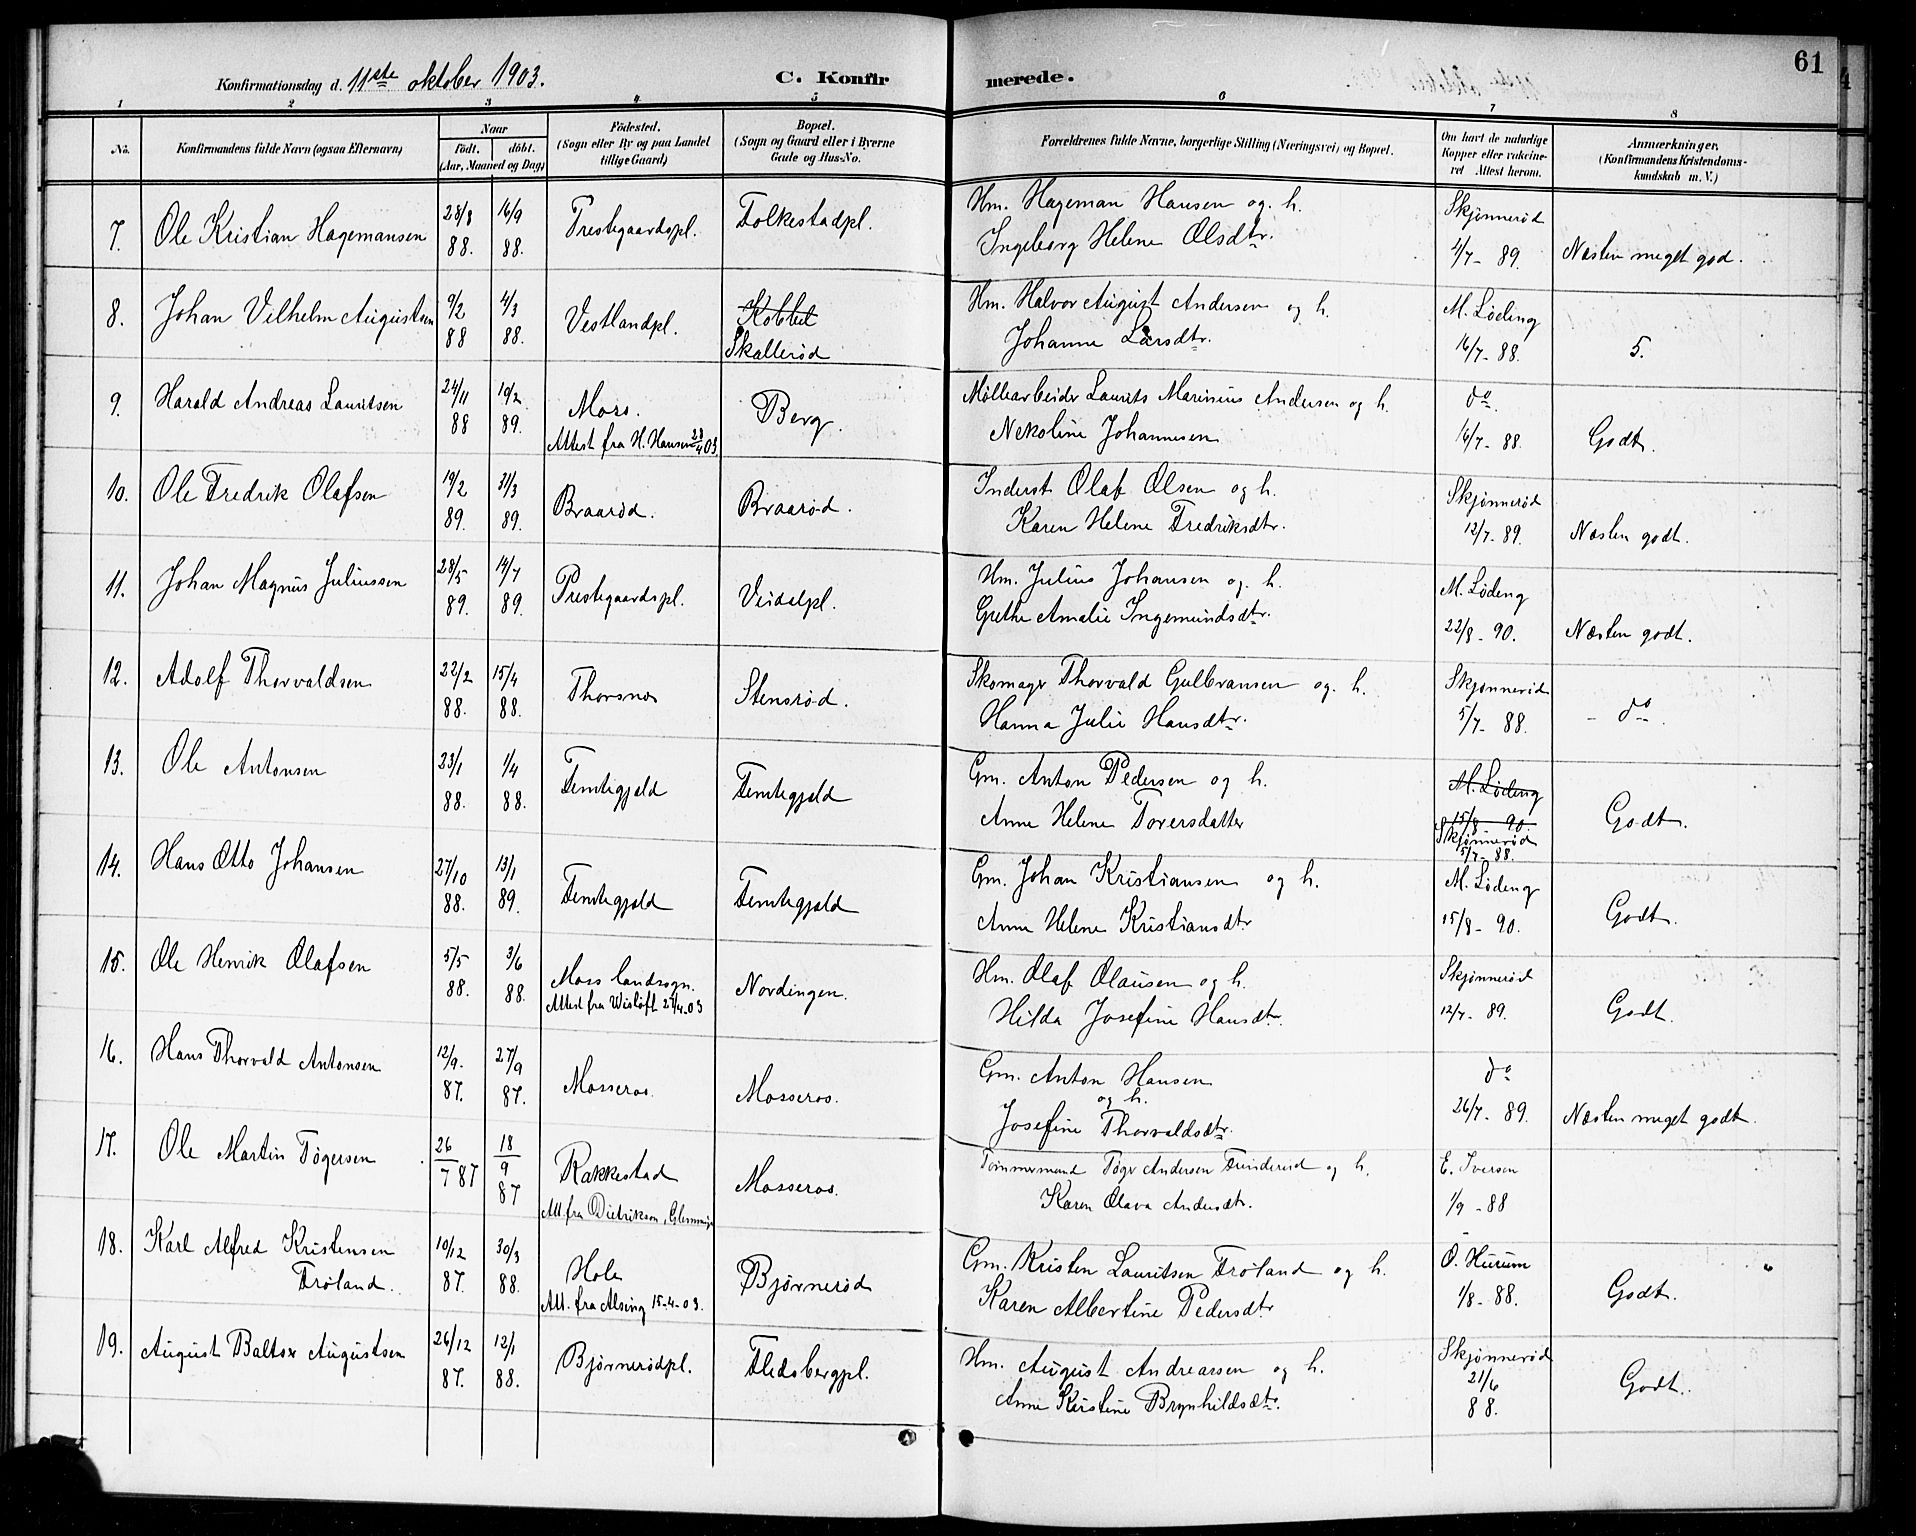 61
Konfirmationsdag d. 11ste oktober 1903.
C. Konfirmerede.
1 2 3 4 5 6 7 8
No.
Konfirmandens fulde Navn (ogsaa Efternavn)
Naar
født. døbt.
(Aar, Maaned og Dag)
Fødested.
(Sogn eller By og paa Landet
tillige Gaard)
Bopæl.
(Sogn og Gaard eller i Byerne
Gade og Hus-No.
Forældrenes fulde Navne, borgerlige Stilling (Næringsvei) og Bopæl.
Om havt de naturlige
Kopper eller vakcine-
ret Attest herom.
Anmærkninger.
(Konfirmandens Kristendoms-
kundskab m. V.)
7. Ole Kristian Hagemansen 28/8 88. 16/9 88. Prestegaardspl. Folkestadpl. Hm. Hageman Hansen og h. Skjønnerød
Ingeborg Helene Olsdtr. 4/7- 89. Næsten meget god.
8. Johan Vilhelm Augustsen 9/2 88 4/3 88. Vestlandpl. Kobbel Hm. Halvor August Andersen og h. M. Løding
Skallerød Johanne Larsdtr. 16/7- 88. 5.
9. Harald Andreas Lauritsen 24/11 88 10/2 89. Moss. Berg. Møllearbeider Laurits Marinius Andersen og h. do.
Attest fra H. Hansen 28/4 03 Nekoline Johannesen 16/7- 88. Godt.
10. Ole Fredrik Olafsen 19/2 89. 31/3 89. Braarød. Braarød. Inderst Olaf Olsen og h. Skjønnerød
Karen Helene Fredriksdtr. 12/7- 89. Næsten godt.
11. Johan Magnus Juliussen 28/5 89. 14/7 89. Prestegaardspl. Veidalpl. Hm. Julius Johansen og h. M. Løding
Grethe Amalie Ingemundsdtr. 22/8- 90. Næsten godt.
12. Adolf Thorvaldsen 22/2 88. 15/4 88. Thorsnes Stensrød. Skomager Thorvald Gulbransen og h. Skjønnerød
Hanna Julie Hansdtr. 5/7- 88. - do.
13. Ole Antonsen 23/1 88. 1/4 88. Femtegjeld Femtegjeld Gm. Anton Pedersen og h. M. Løding
Anne Helene Toversdatter 15/8- 90. Godt.
Skjønnerød
5/7- 88.
14. Hans Otto Johansen 27/10 88. 13/1 89. Femtegjeld Femtegjeld Gm. Johan Kristiansen og h. M. Løding
Anne Helene Kristiansdtr 15/8- 90. Godt.
15. Ole Henrik Olafsen 5/5 88. 3/6 88. Moss landsogn. Nordingen. Hm. Olaf Olausen og h. Skjønnerød
Attest fra Wisløff 27/4-03 Hilda Josefine Hansdtr. 12/7- 89. Godt.
16. Hans Thorvald Antonsen 12/9. 87. 27/9 87. Mosseros. Mosseros. Gm. Anton Hansen do
og h.
Josefine Thorvaldsdtr. 26/7- 89. Næsten meget godt.
17. Ole Martin Tøgersen 26/7 87 18/9 87 Rakkestad Mosseros. Tømmermand Tøger Andersen og h. E. Iversen
Att. fra Didrikson, Glemminge Karen Olava Andersdtr. 1/9 -88
18. Karl Alfred Kristensen 10/12 87. 30/3 88. Hole Bjørnerød Gm. Kristen Lauritsen Frøland og h. O. Hurum
Frøland. Att. fra Alsing 15-4-03. Karen Albertine Pedersdtr 1/8- 88. Godt.
19. August Baltser Augustsen 26/12 87. 12/1 88. Bjørnerødpl. Fledsbergpl. Hm. August Andreassen og h. Skjønnerød
Anne Kristine Brynhildsdtr. 21/6 88. Godt.